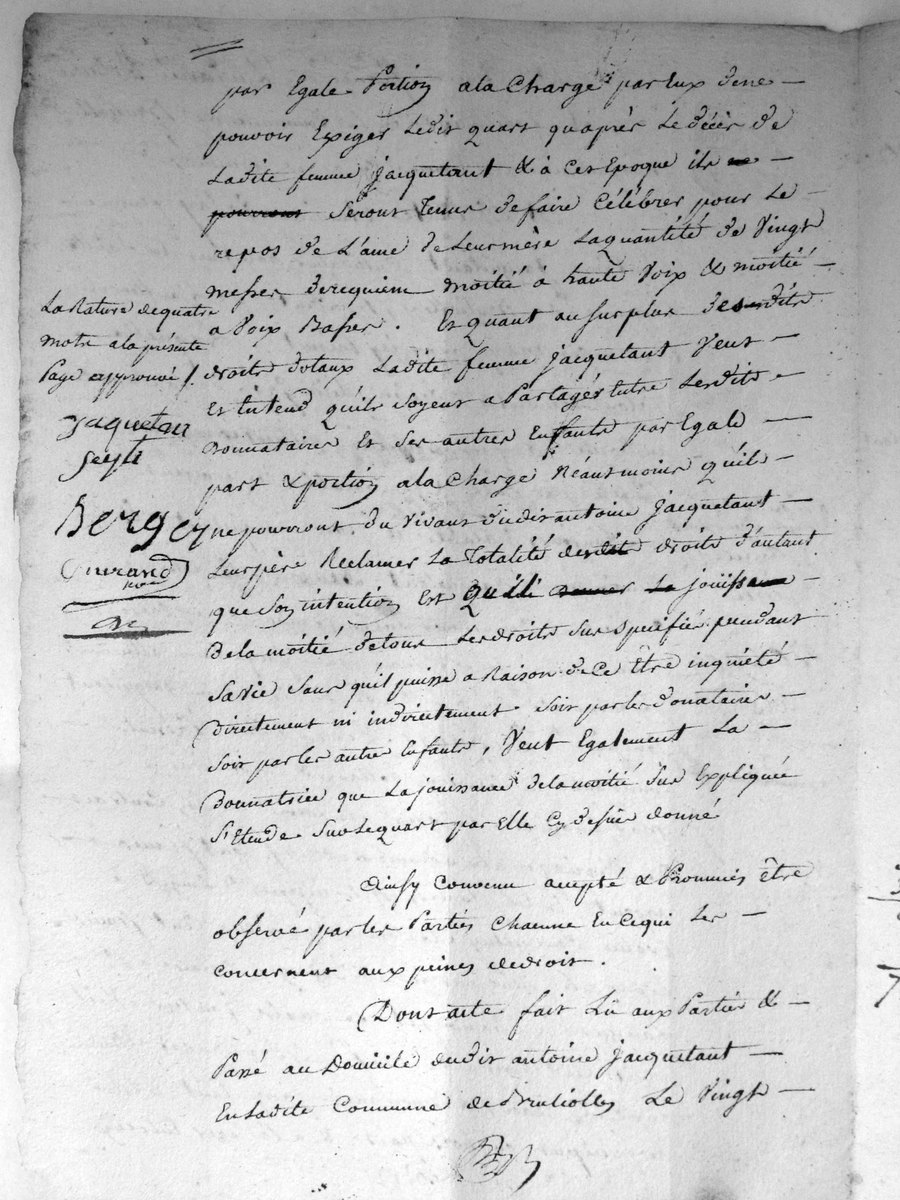 par Egale Portion ala Charge par Eux dene
pouvoir Exiger Ledit quart quaprès Le décès de
Ladite femme Jacquetant & à Cet Epoque ils
pourront Seront Tenus defaire Célébrer pour Le
repos de L'ame de Leur mère Laquantité de Vingt
messes derequiem moitié à haute Voix & moitié
a Voix Basses. Et quant au surplus desdits
droits dotaux Ladite femme Jacquetant Veut
Et Entend qu'ils soyent a Partagés Entre Lesdits
Donnataires Et Ses autres Enfants par Egale
part & portion ala Charge Néantmoins qu'ils
ne pourront du Vivant dudit antoine Jacquetant
Leur père Réclamer La Totalité desdits droits d'autant
que Son intention Est quil La jouissance
Dela moitié detous Les droits Sus Spécifiés pendant
Savie Sans qu'il puisse a Raison de Ce Être inquiété
Directement ni indirectement Soit par les Donataires
Soit par les autres Enfants, Veut Egalement La
Donnatrice que La jouissance dela moitié Sus Expliquée
S'Etende Sur Le quart par Elle Cy dessus donné
Ainsy Convenu accepté & Prommis être
observé par les Parties Chacune En Ce qui Les
Concernent aux peines de droit.
Dont acte fait Lû aux Parties &
Passé au Domicile dudit antoine Jacquetant
En Ladite Commune de Brulliolles Le Vingt
La Rature de quatre
mots ala présente
Page approuvé /.
Jaquetan
Berger
Durand